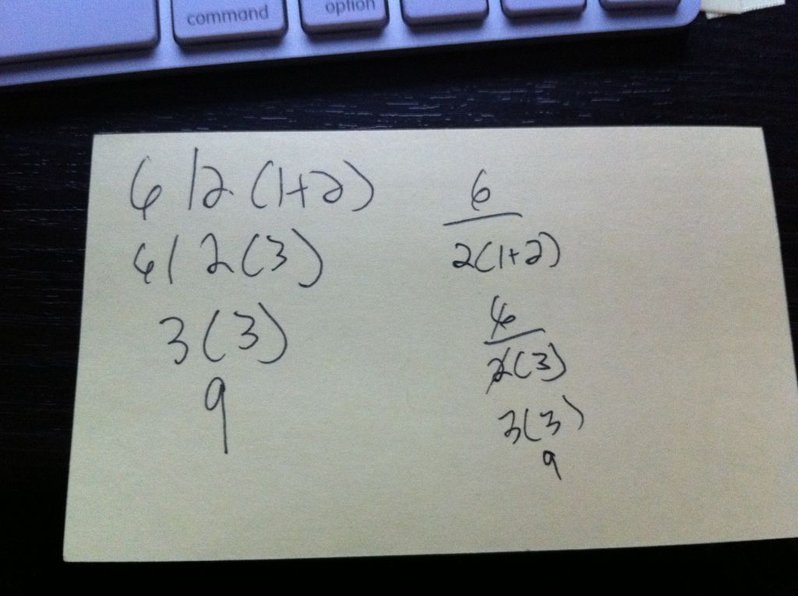 command
option
6/2(1+2)
6/2(3)
3(3)
9
6
2(1+2)
6
2(3)
3(3)
9